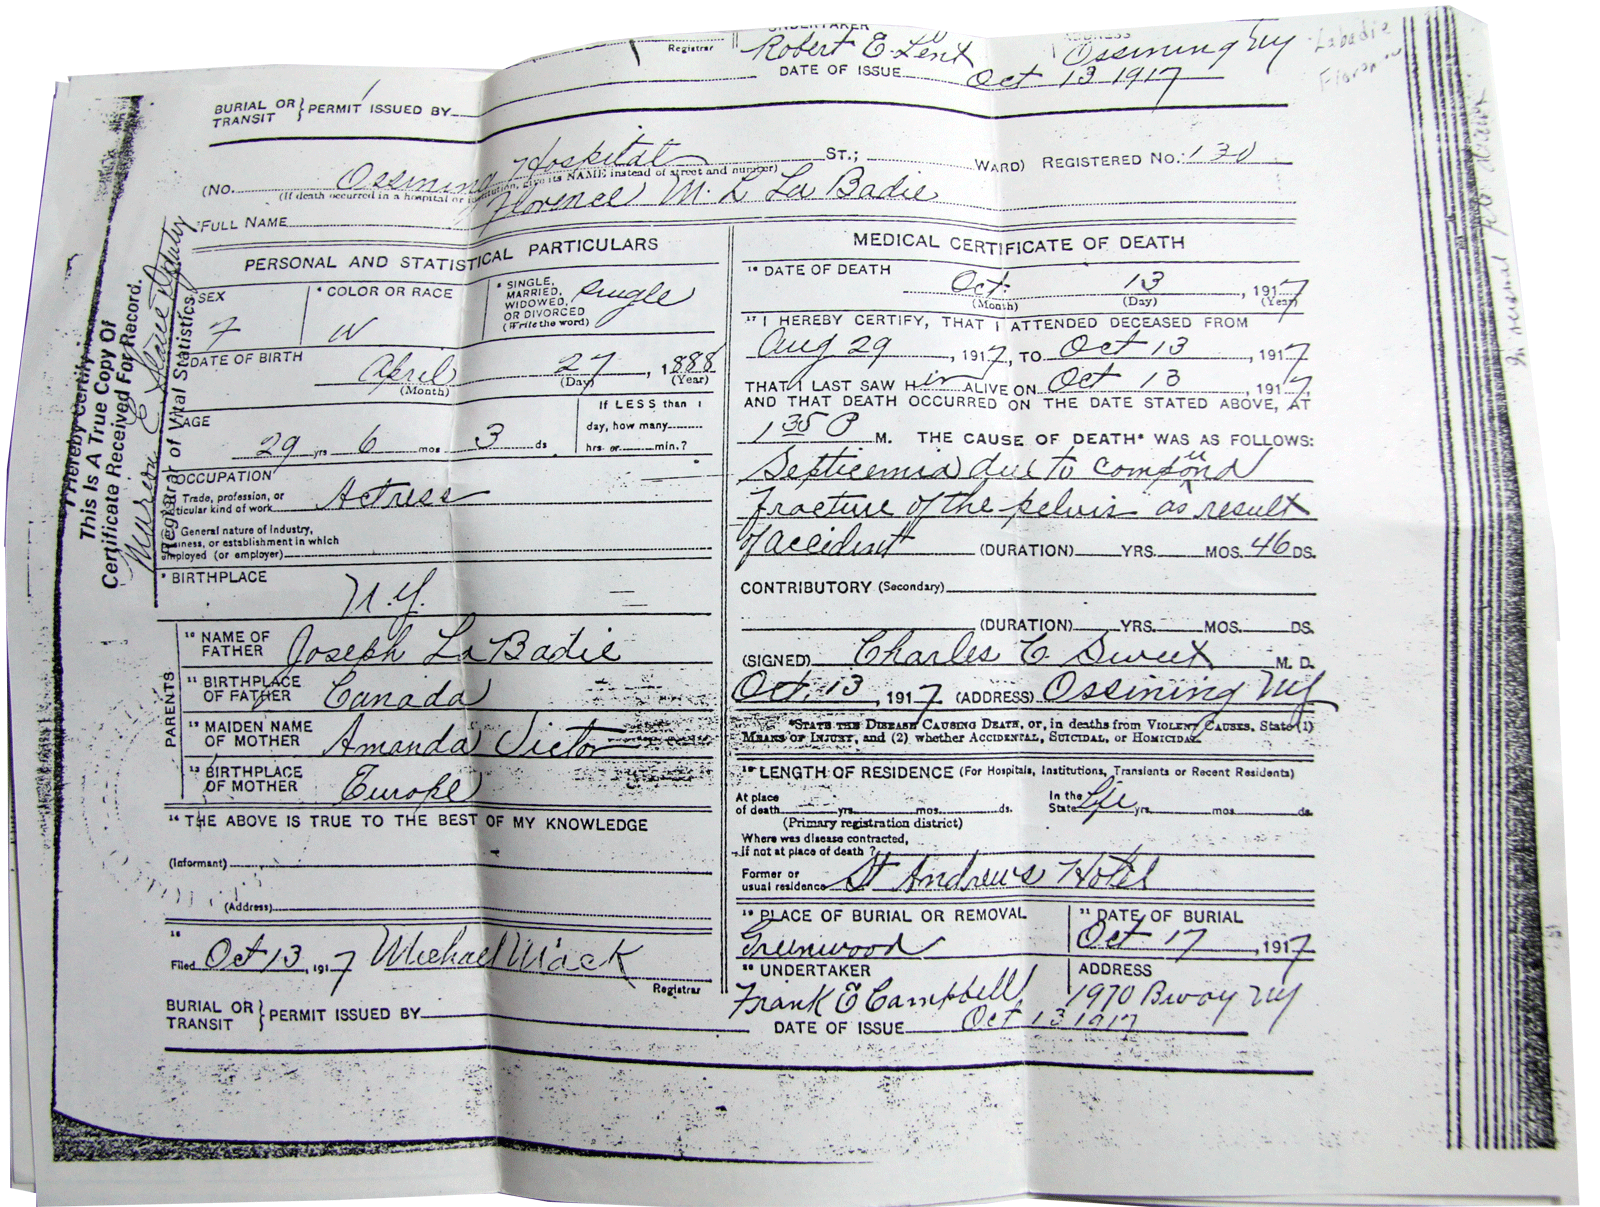 UNDERTAKER ADDRESS
Registrar Robert E. Lent Ossining NY
DATE OF ISSUE Oct 13 1917
BURIAL OR TRANSIT } PERMIT ISSUED BY
Labadie
(No. Ossining Hospital ST.; WARD) REGISTERED No. 130
(If death occurred in a hospital or institution, give its NAME instead of street and number)
FULL NAME Florence M. L La Badie
PERSONAL AND STATISTICAL PARTICULARS
SEX F
4 COLOR OR RACE W
5 SINGLE, MARRIED, WIDOWED, OR DIVORCED (Write the word) Single
DATE OF BIRTH April 27, 1888
(Month) (Day) (Year)
AGE 29 yrs 6 mos 3 ds
If LESS than 1 day, how many hrs. or min.?
OCCUPATION
Trade, profession, or particular kind of work Actress
General nature of Industry, business, or establishment in which employed (or employer)
9 BIRTHPLACE N.Y.
PARENTS
10 NAME OF FATHER Joseph La Badie
11 BIRTHPLACE OF FATHER Canada
12 MAIDEN NAME OF MOTHER Amanda Victor
13 BIRTHPLACE OF MOTHER Europe
14 THE ABOVE IS TRUE TO THE BEST OF MY KNOWLEDGE
(Informant)
(Address)
15
Filed Oct 13, 1917 Michael Mack
Registrar
BURIAL OR TRANSIT } PERMIT ISSUED BY
MEDICAL CERTIFICATE OF DEATH
16 DATE OF DEATH
Oct 13, 1917
(Month) (Day) (Year)
17 I HEREBY CERTIFY, THAT I ATTENDED DECEASED FROM
Aug 29, 1917, TO Oct 13, 1917
THAT I LAST SAW Him ALIVE ON Oct 13, 1917,
AND THAT DEATH OCCURRED ON THE DATE STATED ABOVE, AT
1 35 P M. THE CAUSE OF DEATH* WAS AS FOLLOWS:
Septicemia due to compound
fracture of the pelvis as result
of accident (DURATION) YRS. MOS. 46 DS.
CONTRIBUTORY (Secondary)
(DURATION) YRS. MOS. DS.
(SIGNED) Charles C. Sweet M. D.
Oct. 13, 1917 (ADDRESS) Ossining NY
*STATE THE DISEASE CAUSING DEATH, or, in deaths from VIOLENT CAUSES, State (1)
MEANS OF INJURY, and (2) whether ACCIDENTAL, SUICIDAL, or HOMICIDAL.
18 LENGTH OF RESIDENCE (For Hospitals, Institutions, Transients or Recent Residents)
At place of death yrs. mos. ds. In the State Life yrs. mos. ds.
(Primary registration district)
Where was disease contracted,
if not at place of death ?
Former or usual residence St Andrews Hotel
19 PLACE OF BURIAL OR REMOVAL
Greenwood
21 DATE OF BURIAL
Oct 17, 1917
20 UNDERTAKER
Frank E Campbell
ADDRESS
1970 Bway NY
DATE OF ISSUE Oct 13 1917
I Hereby Certify
This Is A True Copy Of
Certificate Received For Record.
Deputy
Registrar of Vital Statistics.